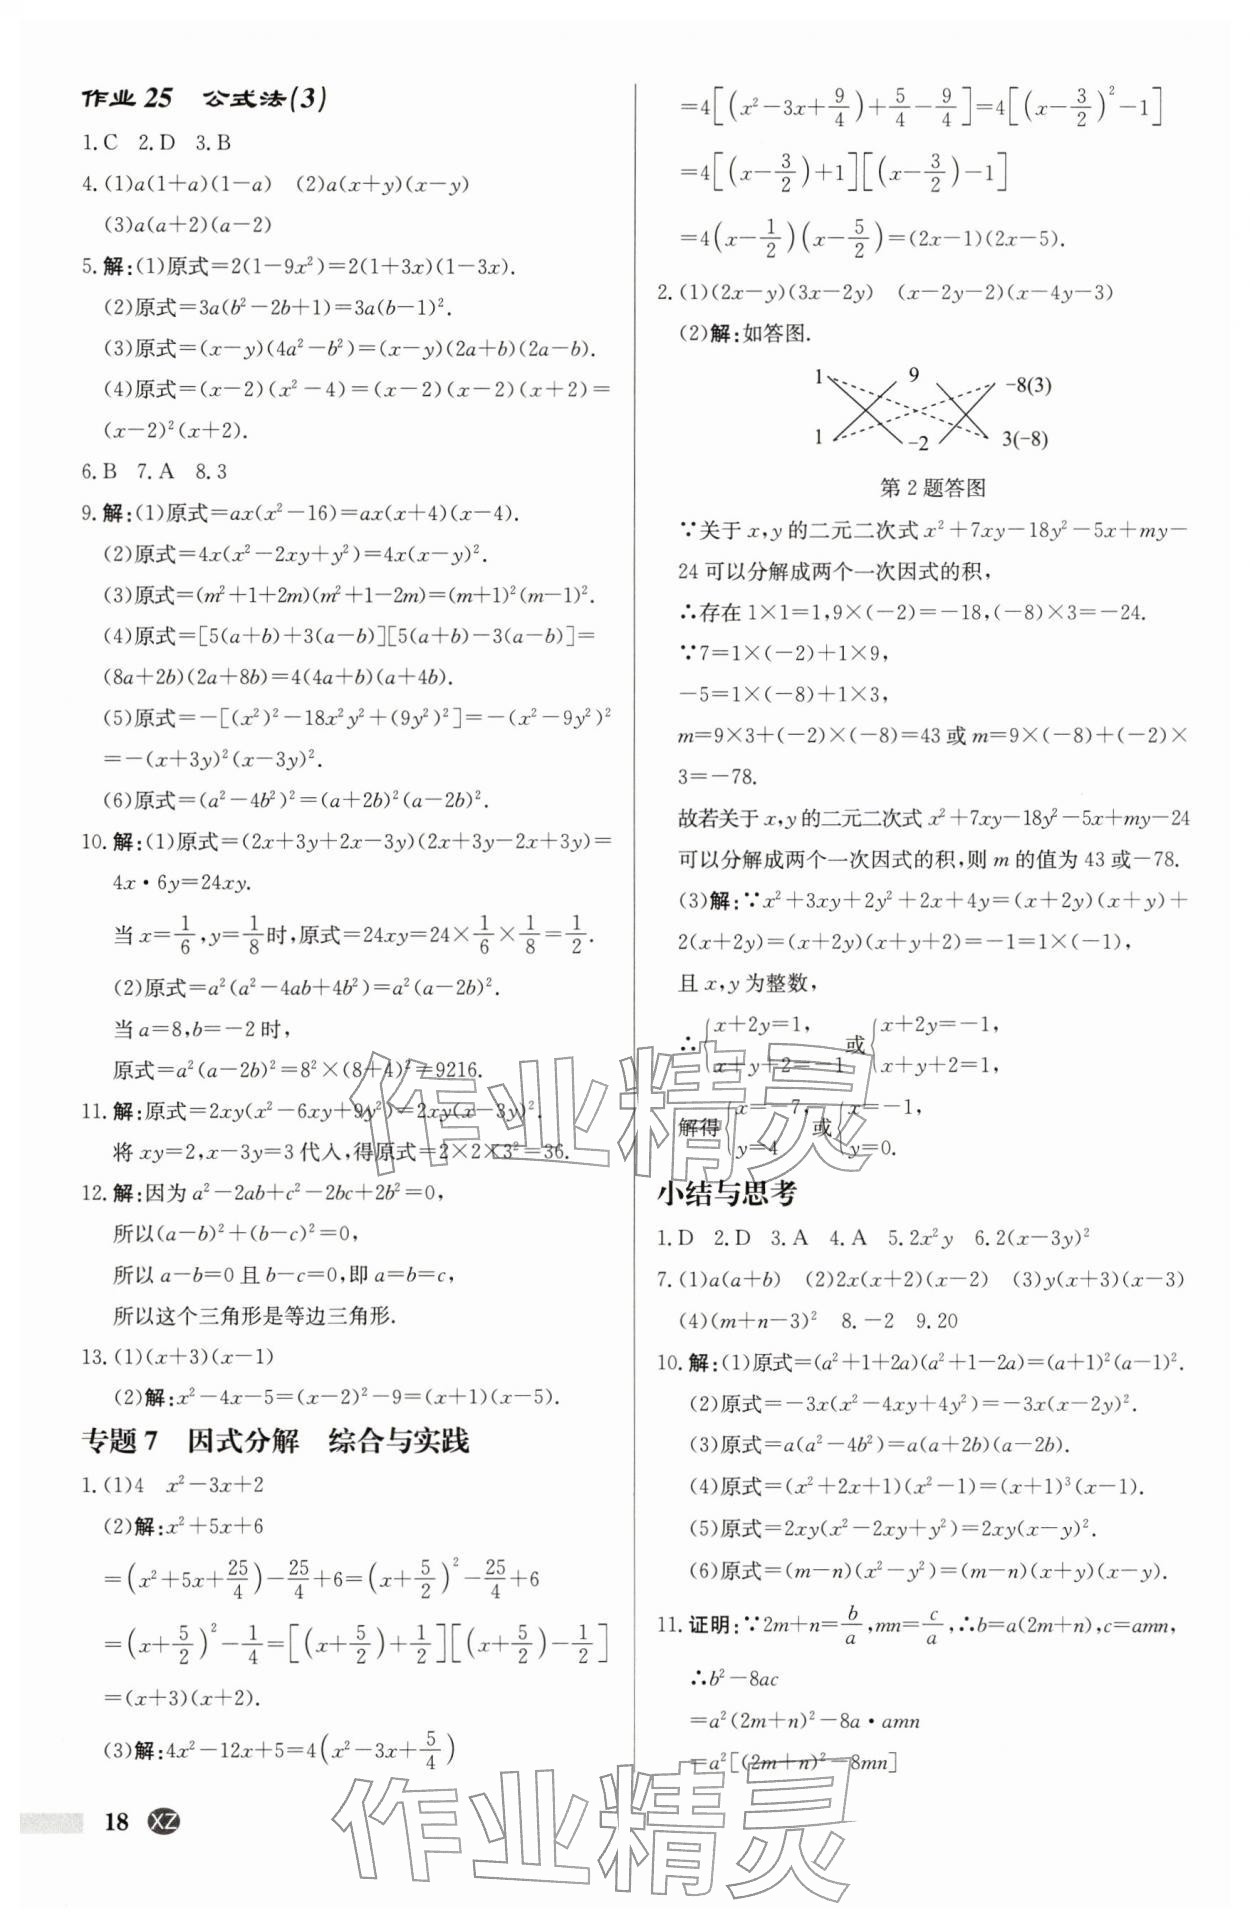 作业 25　公式法(3)
1.C　2.D　3.B
4.(1)a(1+a)(1−a)　(2)a(x+y)(x−y)
(3)a(a+2)(a−2)
5.解:(1)原式=2(1−9x²)=2(1+3x)(1−3x).
(2)原式=3a(b²−2b+1)=3a(b−1)².
(3)原式=(x−y)(4a²−b²)=(x−y)(2a+b)(2a−b).
(4)原式=(x−2)(x²−4)=(x−2)(x−2)(x+2)=
(x−2)²(x+2).
6.B　7.A　8.3
9.解:(1)原式=ax(x²−16)=ax(x+4)(x−4).
(2)原式=4x(x²−2xy+y²)=4x(x−y)².
(3)原式=(m²+1+2m)(m²+1−2m)=(m+1)²(m−1)².
(4)原式=[5(a+b)+3(a−b)][5(a+b)−3(a−b)]=
(8a+2b)(2a+8b)=4(4a+b)(a+4b).
(5)原式=−[(x²)²−18x²y²+(9y²)²]=−(x²−9y²)²
=−(x+3y)²(x−3y)².
(6)原式=(a²−4b²)²=(a+2b)²(a−2b)².
10.解:(1)原式=(2x+3y+2x−3y)(2x+3y−2x+3y)=
4x·6y=24xy.
当 x=1/6,y=1/8时,原式=24xy=24×1/6×1/8=1/2.
(2)原式=a²(a²−4ab+4b²)=a²(a−2b)².
当 a=8,b=−2 时,
原式=a²(a−2b)²=8²×(8+4)²=9216.
11.解:原式=2xy(x²−6xy+9y²)=2xy(x−3y)².
将 xy=2,x−3y=3 代入,得原式=2×2×3²=36.
12.解:因为 a²−2ab+c²−2bc+2b²=0,
所以(a−b)²+(b−c)²=0,
所以 a−b=0 且 b−c=0,即 a=b=c,
所以这个三角形是等边三角形.
13.(1)(x+3)(x−1)
(2)解:x²−4x−5=(x−2)²−9=(x+1)(x−5).
专题 7　因式分解　综合与实践
1.(1)4　x²−3x+2
(2)解:x²+5x+6
=(x²+5x+25/4)−25/4+6=(x+5/2)²−25/4+6
=(x+5/2)²−1/4=[(x+5/2)+1/2][(x+5/2)−1/2]
=(x+3)(x+2).
(3)解:4x²−12x+5=4(x²−3x+5/4)
18 XZ
=4[(x²−3x+9/4)+5/4−9/4]=4[(x−3/2)²−1]
=4[(x−3/2)+1][(x−3/2)−1]
=4(x−1/2)(x−5/2)=(2x−1)(2x−5).
2.(1)(2x−y)(3x−2y)　(x−2y−2)(x−4y−3)
(2)解:如答图.
1　9　−8(3)
1　−2　3(−8)
第 2 题答图
∵关于 x,y 的二元二次式 x²+7xy−18y²−5x+my−
24 可以分解成两个一次因式的积,
∴存在 1×1=1,9×(−2)=−18,(−8)×3=−24.
∵7=1×(−2)+1×9,
−5=1×(−8)+1×3,
m=9×3+(−2)×(−8)=43 或 m=9×(−8)+(−2)×
3=−78.
故若关于 x,y 的二元二次式 x²+7xy−18y²−5x+my−24
可以分解成两个一次因式的积,则 m 的值为 43 或−78.
(3)解:∵x²+3xy+2y²+2x+4y=(x+2y)(x+y)+
2(x+2y)=(x+2y)(x+y+2)=−1=1×(−1),
且 x,y 为整数,
∴{x+2y=1, x+y+2=−1 或{x+2y=−1, x+y+2=1,
解得{x=−7, y=4 或{x=−1, y=0.
小结与思考
1.D　2.D　3.A　4.A　5.2x²y　6.2(x−3y)²
7.(1)a(a+b)　(2)2x(x+2)(x−2)　(3)y(x+3)(x−3)
(4)(m+n−3)²　8.−2　9.20
10.解:(1)原式=(a²+1+2a)(a²+1−2a)=(a+1)²(a−1)².
(2)原式=−3x(x²−4xy+4y²)=−3x(x−2y)².
(3)原式=a(a²−4b²)=a(a+2b)(a−2b).
(4)原式=(x²+2x+1)(x²−1)=(x+1)³(x−1).
(5)原式=2xy(x²−2xy+y²)=2xy(x−y)².
(6)原式=(m−n)(x²−y²)=(m−n)(x+y)(x−y).
11.证明:∵2m+n=b/a,mn=c/a,∴b=a(2m+n),c=amn,
∴b²−8ac
=a²(2m+n)²−8a·amn
=a²[(2m+n)²−8mn]
作业精灵
作业精灵